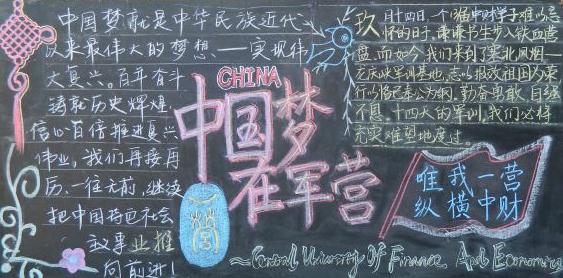 中国梦就是中华民族近代
以来最伟大的梦想——实现伟
大复兴。百年奋斗
铸就历史辉煌,
信心百倍推进复兴
伟业,我们再接再
厉,一往无前,继续
把中国特色社会
叙事业推
向前进!
CHINA
中国梦
在军营
玖月十四日,一个
怀的日子,谦谦书生步入铁血营
盘。而如今,我们来到了塞北风烟—
训基地,志以报效祖国为荣
行以修己奉公为纲,勤奋勇敢、自强
不息,十四天的军训,我们必将
充实难望地度过。
唯我一营
纵横中财
~Central University Of Finance And Economics